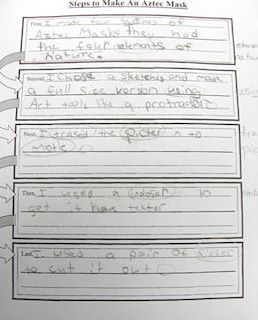 Steps to Make An Aztec Mask
First, I made four Sketches of
Aztec Masks they had
the four elements of
nature.
Second, I chose a Sketches and made
a full Size version using
Art tools like a protractor
Next, I traced the in to
Then, I used a to
get it have
Last, I used a pair Of
to cut it out